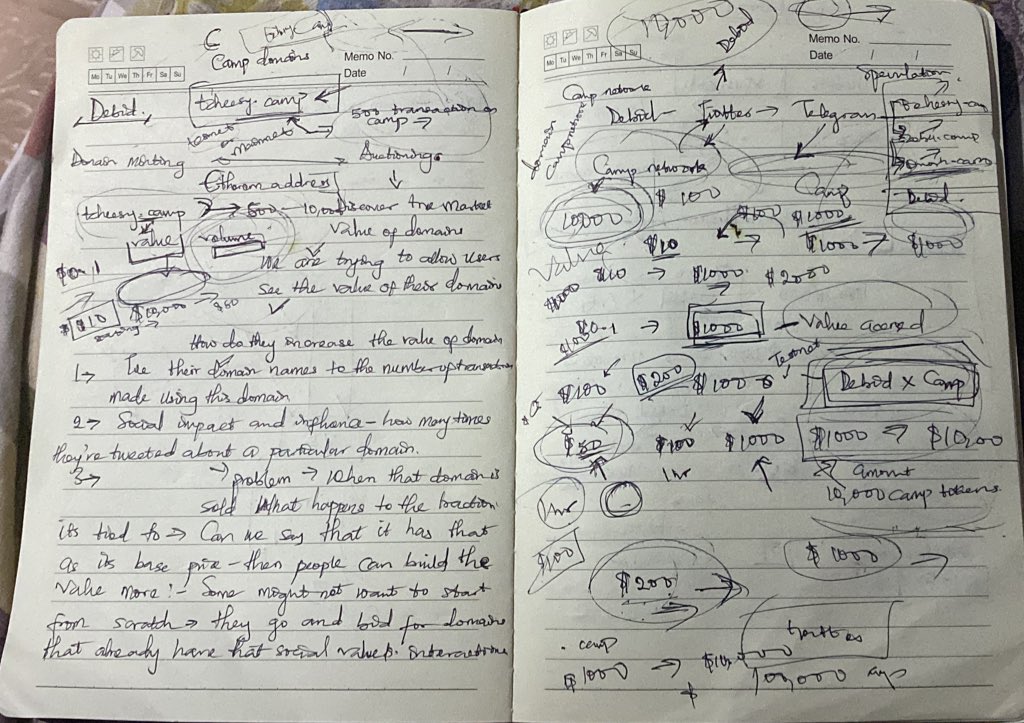 Camp domains
Memo No.
Mo Tu We Th Fr Sa Su
Date / /
Debid.
tcheesy.camp
500 transaction on
camp →
Domain minting
Auctioning
Ethereum address
tcheesy.camp → 500 – 10,000
Discover the market
value of domains
value
volume
We are trying to allow users
see the value of their domain
$0.1
$10
$10,000 → $50
How do they increase the value of domain
1→ Tie their domain names to the number of transactions
made using this domain
2→ Social impact and – how many times
they're tweeted about a particular domain.
3→
→ problem → When that domain is
sold What happens to the traction
its tied to → Can we say that it has that
as its base price – then people can build the
value more! – Some might not want to start
from scratch → they go and bid for domains
that already have that social value & interactions
10,000
Debid
Memo No.
Mo Tu We Th Fr Sa Su
Date / /
Speculation
Camp network
Debid – Twitter → Telegram
tcheesy.camp
domain
camp network
Camp network
Camp
Debid.
10,000
$100
$1000
Value
$10
→ $1000 → $1000
$10 → $1000 $2000
$0.1 → $1000 – Value accrued
$1000
Testnet
$100 $200 $1000
Debid x Camp
$50 $100 $1000
$1000 → $10,000
1hr
amount
10,000 camp tokens
1hr
$100
$200 →
$1000 →
.camp
$1000 →
100,000